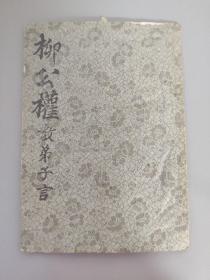 柳公权教弟子言